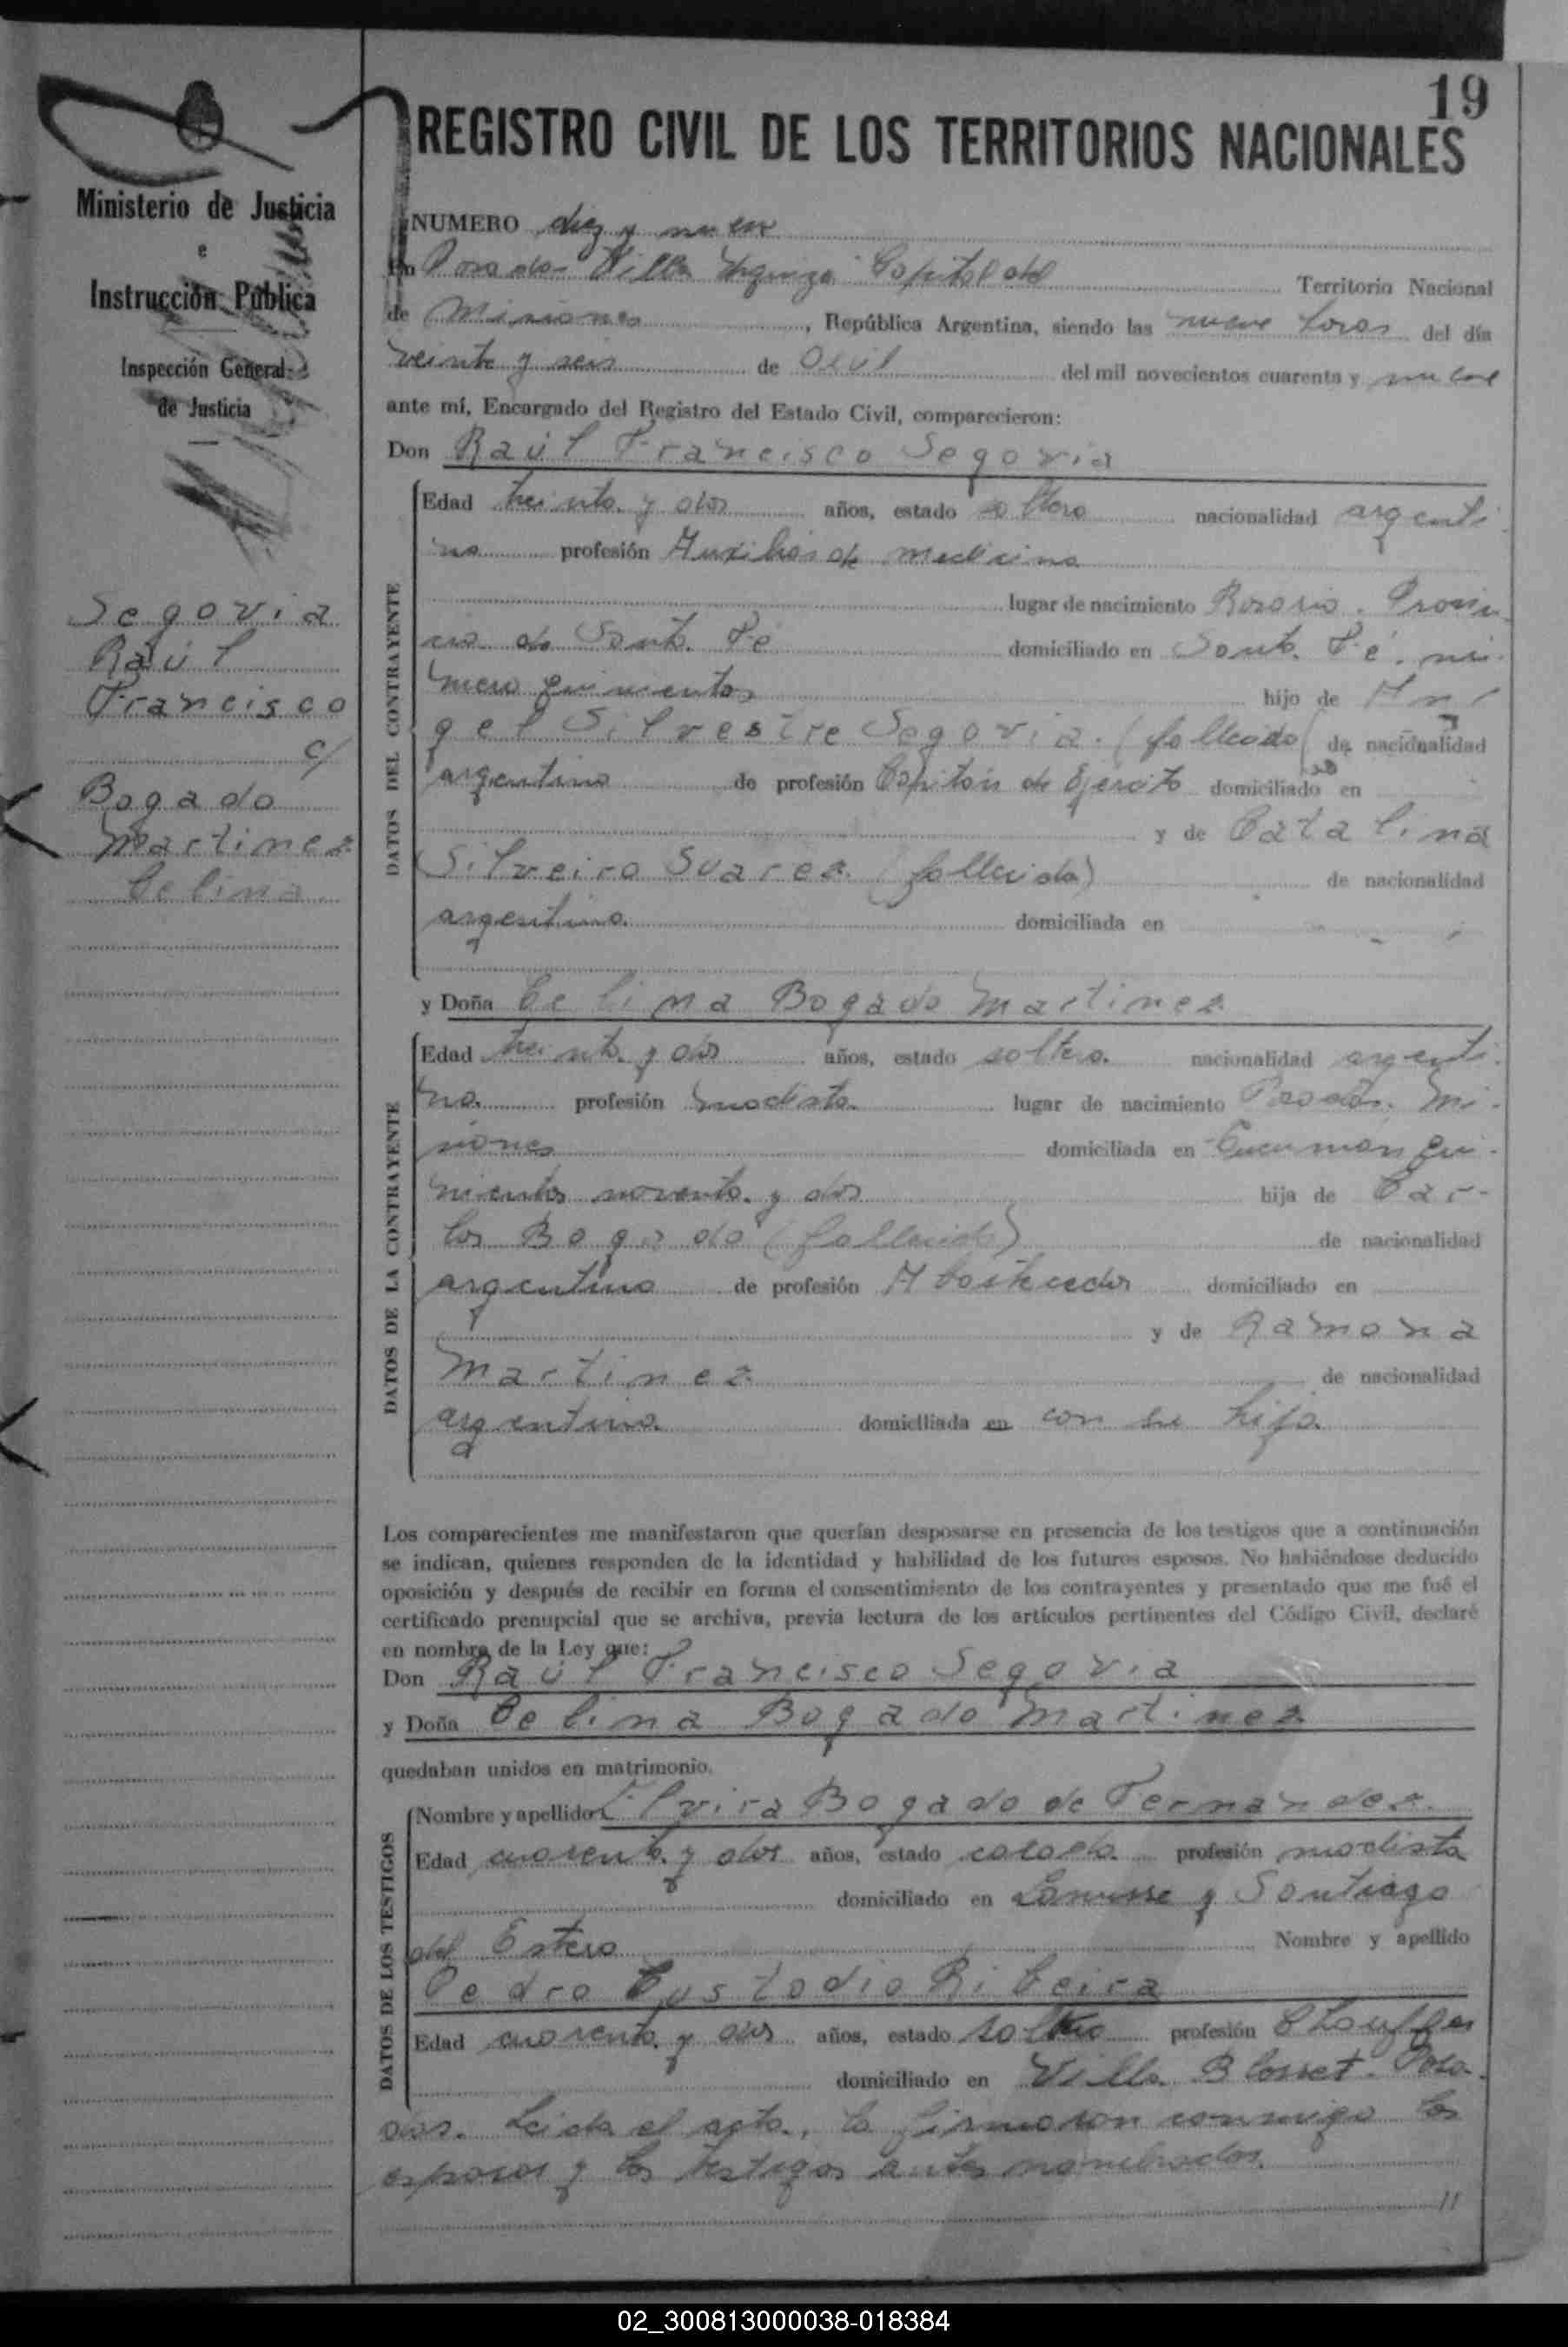 19
REGISTRO CIVIL DE LOS TERRITORIOS NACIONALES
Ministerio de Justicia
e
Instrucción Pública
Inspección General
de Justicia
Segovia
Raúl
Francisco
c/
Bogado
Martinez
Celina
NUMERO diez y nueve
En Posadas Villa Urquiza Capital del Territorio Nacional
de Misiones, República Argentina, siendo las nueve horas del día
veinte y seis de Abril del mil novecientos cuarenta y nueve
ante mí, Encargado del Registro del Estado Civil, comparecieron:
Don Raúl Francisco Segovia
DATOS DEL CONTRAYENTE
Edad treinta y dos años, estado soltero nacionalidad argenti-
no profesión Auxiliar de medicina
lugar de nacimiento Rosario. Provin-
cia de Santa Fé domiciliado en Santa Fé. nú-
mero quinientos hijo de An-
gel Silvestre Segovia. (fallecido) de nacionalidad
argentino de profesión Capitán de Ejercito domiciliado en
y de Catalina
Silveira Suarez (fallecida) de nacionalidad
argentina domiciliada en
y Doña Celina Bogado Martinez
DATOS DE LA CONTRAYENTE
Edad treinta y dos años, estado soltera nacionalidad argenti-
na profesión modista lugar de nacimiento Posadas. Mi-
siones domiciliada en Tucumán qui-
nientos noventa y dos hija de Car-
los Bogado (fallecido) de nacionalidad
argentino de profesión Abastecedor domiciliado en
y de Ramona
Martinez de nacionalidad
argentina domiciliada en con su hija
Los comparecientes me manifestaron que querían desposarse en presencia de los testigos que a continuación
se indican, quienes responden de la identidad y habilidad de los futuros esposos. No habiéndose deducido
oposición y después de recibir en forma el consentimiento de los contrayentes y presentado que me fué el
certificado prenupcial que se archiva, previa lectura de los artículos pertinentes del Código Civil, declaré
en nombre de la Ley que:
Don Raúl Francisco Segovia
y Doña Celina Bogado Martinez
quedaban unidos en matrimonio.
DATOS DE LOS TESTIGOS
Nombre y apellido Elvira Bogado de Fernandez
Edad cuarenta y dos años, estado casada profesión modista
domiciliado en Lanusse y Santiago
del Estero Nombre y apellido
Pedro Custodio Ribeira
Edad cuarenta y dos años, estado soltero profesión Chouffer
domiciliado en Villa Blosset. Posa-
das. Leida el acta, la firmaron conmigo los
esposos y los testigos antes nombrados.
02_300813000038-018384